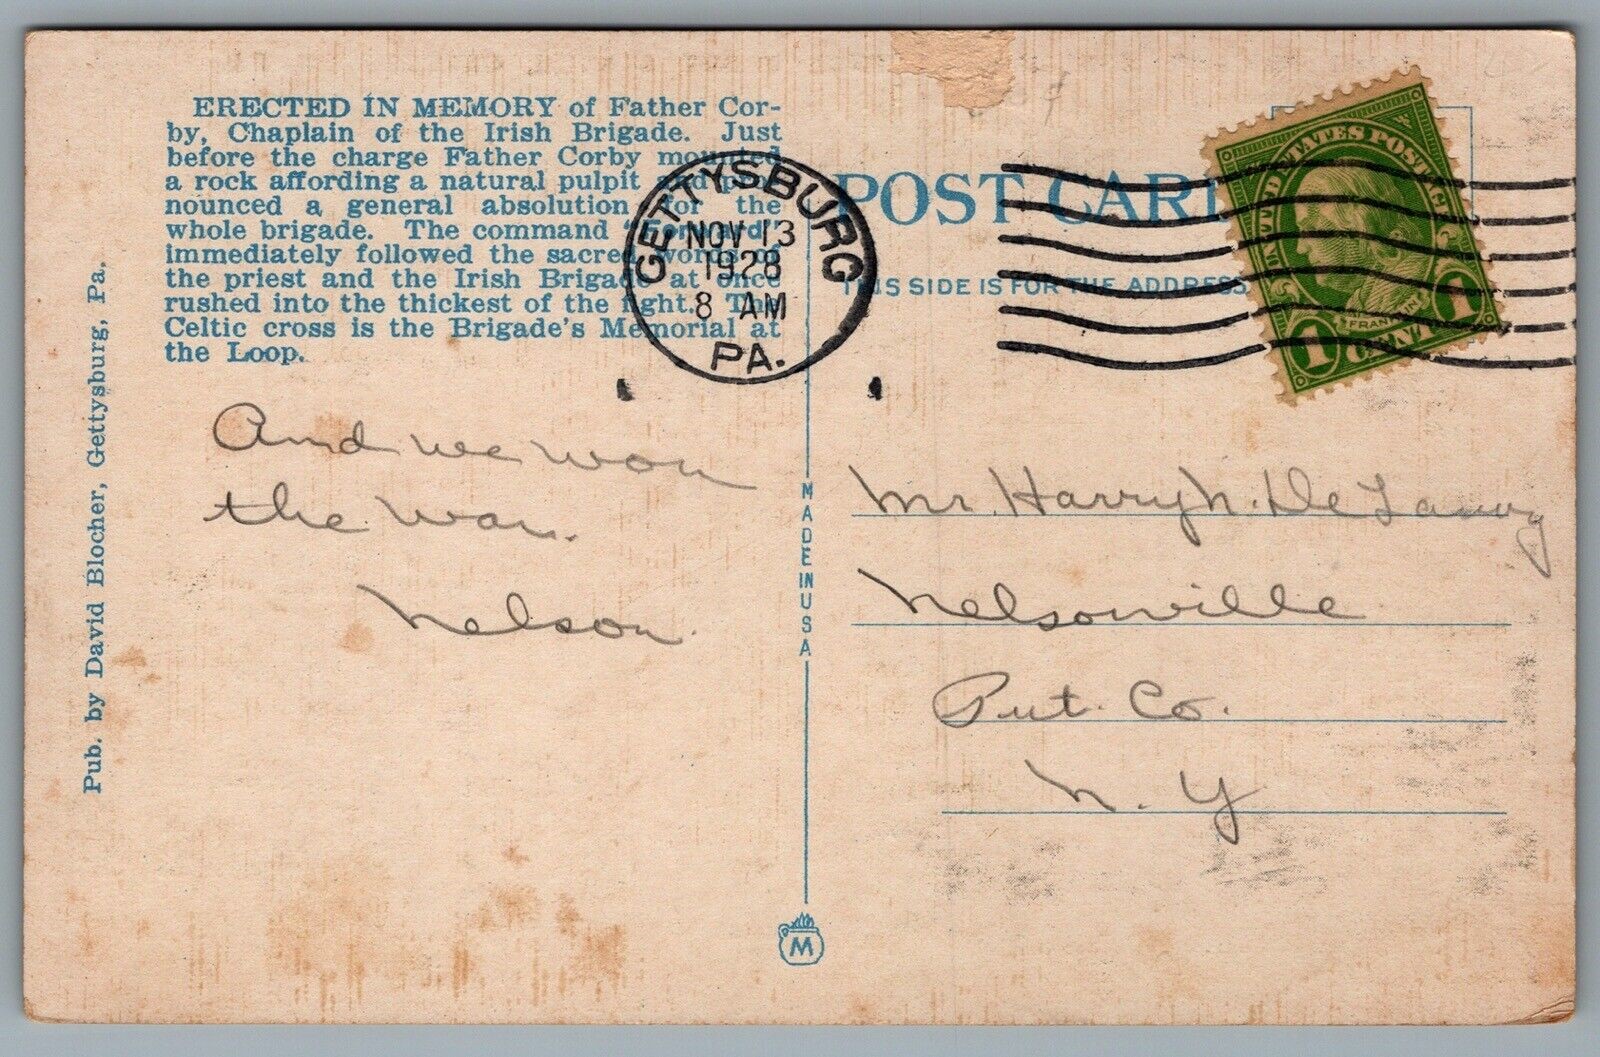 ERECTED IN MEMORY of Father Cor-
by, Chaplain of the Irish Brigade. Just
before the charge Father Corby mounted
a rock affording a natural pulpit and pro-
nounced a general absolution for the
whole brigade. The command "Forward"
immediately followed the sacred words of
the priest and the Irish Brigade at once
rushed into the thickest of the fight. The
Celtic cross is the Brigade's Memorial at
the Loop.
Pub. by David Blocher, Gettysburg, Pa.
And we won
the war.
Nelson.
GETTYSBURG
NOV 13
1928
8 AM
PA.
MADE IN USA
M
POST CARD
THIS SIDE IS FOR THE ADDRESS
UNITED STATES POSTAGE
FRANKLIN
1 CENT 1
Mr. Harry N. De Lanoy
Nelsonville
Put. Co.
N. Y